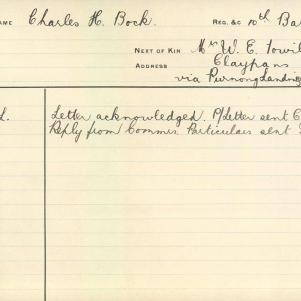 NAME Charles H. Bock. REG. &C 10th Ba
NEXT OF KIN Mr W. E. Towil
ADDRESS Claypans
via Purnong Landing
L. Letter acknowledged. P/Letter sent C
Reply from Commis. Particulars sent